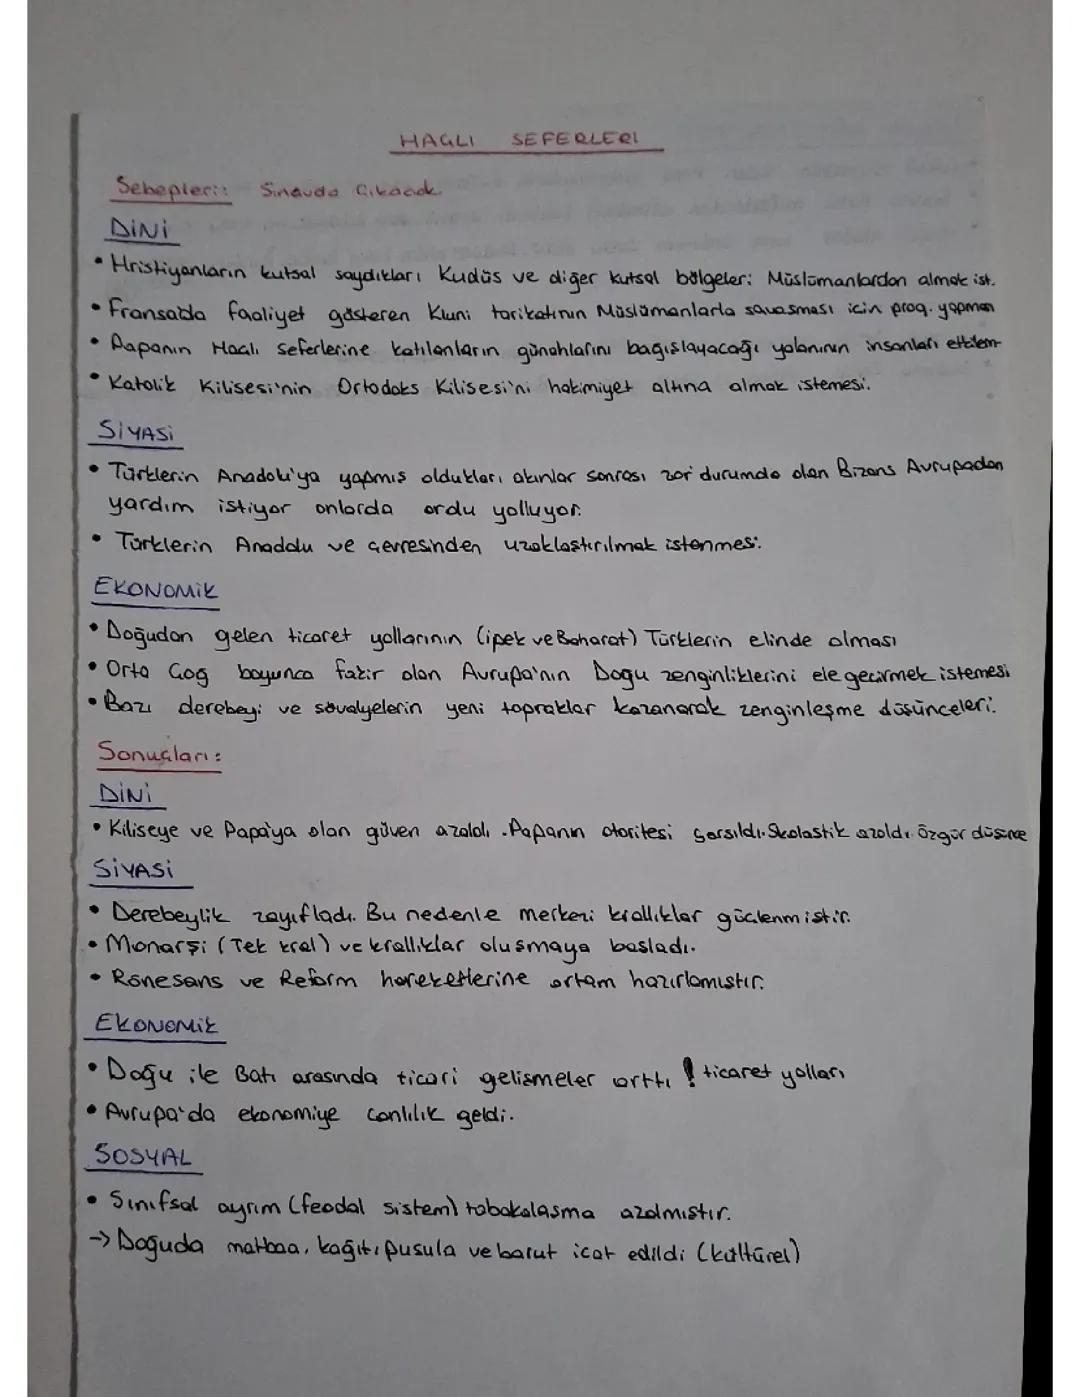 HAÇLI SEFERLERİ
Sebepleri: Sınavda Çıkacak
DİNİ
• Hristiyanların kutsal saydıkları Kudüs ve diğer kutsal bölgeleri Müslümanlardan almak ist.
• Fransa'da faaliyet gösteren Kluni tarikatının Müslümanlarla savaşması için prog. yapması
• Papanın Haçlı Seferlerine katılanların günahlarını bağışlayacağı yalanının insanları etkilem-
• Katolik Kilisesi'nin Ortodoks Kilisesi'ni hakimiyet altına almak istemesi.
SİYASİ
• Türklerin Anadolu'ya yapmış oldukları akınlar sonrası zor durumda olan Bizans Avrupadan
yardım istiyor onlarda ordu yolluyor.
• Türklerin Anadolu ve çevresinden uzaklaştırılmak istenmesi.
EKONOMİK
• Doğudan gelen ticaret yollarının (ipek ve Baharat) Türklerin elinde olması
• Orta Çağ boyunca fakir olan Avrupa'nın Doğu zenginliklerini ele geçirmek istemesi
• Bazı derebeyi ve şövalyelerin yeni topraklar kazanarak zenginleşme düşünceleri.
Sonuçları:
DİNİ
• Kiliseye ve Papa'ya olan güven azaldı. Papanın otoritesi sarsıldı. Skolastik azaldı. Özgür düşünce
SİYASİ
• Derebeylik zayıfladı. Bu nedenle merkezi krallıklar güçlenmiştir.
• Monarşi (Tek kral) ve krallıklar oluşmaya başladı.
• Rönesans ve Reform hareketlerine ortam hazırlamıştır.
EKONOMİK
• Doğu ile Batı arasında ticari gelişmeler arttı ! ticaret yolları
• Avrupa'da ekonomiye canlılık geldi.
SOSYAL
• Sınıfsal ayrım (feodal sistem) tabakalaşma azalmıştır.
→ Doğuda matbaa, kağıt, pusula ve barut icat edildi (kültürel)